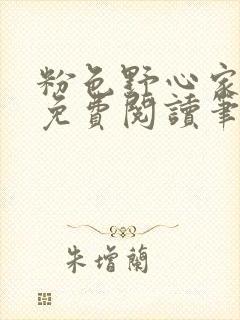 粉色野心家
免費閱讀筆
朱增蘭